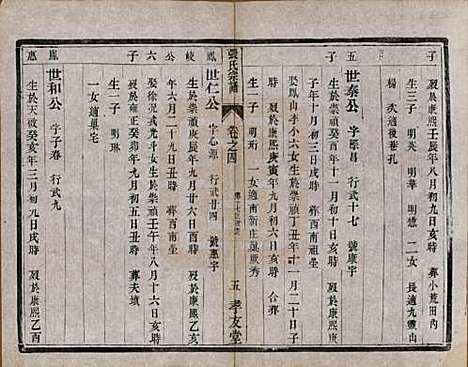 子 歿於康熙壬辰年八月初九日亥時 葬小荒田內
生三子 明英 明華 明楚 二女 長適九靈山
楊 次適後巷孔
五 世泰公 字際昌 行武十七 號康宇
生於崇禎癸酉年十一月初十日亥時
歿於康熙 葬西南祖坐
娶鳳山李小六女生於崇禎丁丑年十一月二十日子時
歿於康熙庚寅年 初十亥時 合葬
生一子 明珩 一女適南新庄 康秀
張氏宗譜
卷之四
五 孝友堂
鳳 世仁公 字心源 行武廿四 號惠宇
岐 生於崇禎 歿於康熙
公 年六月二十九日丑時 葬西南
六 娶徐 武光斗女生於崇禎壬午年八月十六日亥時
子 歿於雍正癸卯年九月初五日丑時 葬夫墳
生一子 明琳
一女適巢宅
鳳 世和公 字子春 行武九
惠 生於天啟癸亥年三月初九日戌時 歿於康熙乙酉